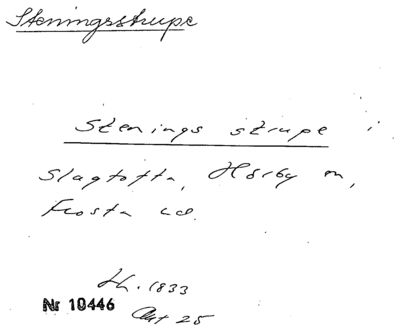 Steningsstrupe
Stenings strupe i
Slagtofta, Hörby sn,
Frosta hd.
Lh. 1833
Nr 10446
Akt 25